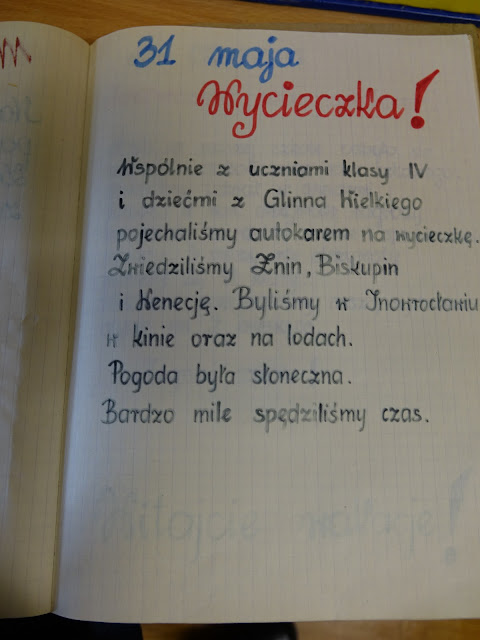 31 maja
Wycieczka!
Wspólnie z uczniami klasy IV
i dziećmi z Glinna Wielkiego
pojechaliśmy autokarem na wycieczkę.
Zwiedziliśmy Żnin, Biskupin
i Wenecję. Byliśmy w Inowrocławiu
w kinie oraz na lodach.
Pogoda była słoneczna.
Bardzo mile spędziliśmy czas.
Witajcie wakacje!